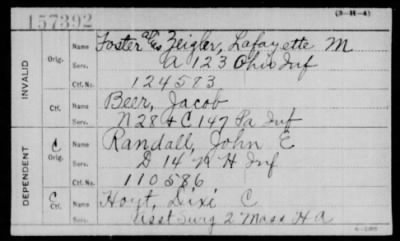 157392
(3-H-4)
INVALID
Orig.
Name Foster alias Zeigler, Lafayette M
Serv. A 123 Ohio Inf
Ctf. No. 124583
Ctf.
Name Beer, Jacob
Serv. N 28 & C 147 Pa Inf
DEPENDENT
C
Orig.
Name Randall, John E
Serv. D 14 N H Inf
Ctf. No. 110586
C
Ctf.
Name Hoyt, Dixi C
Serv. Asst Surg 2" Mass H A